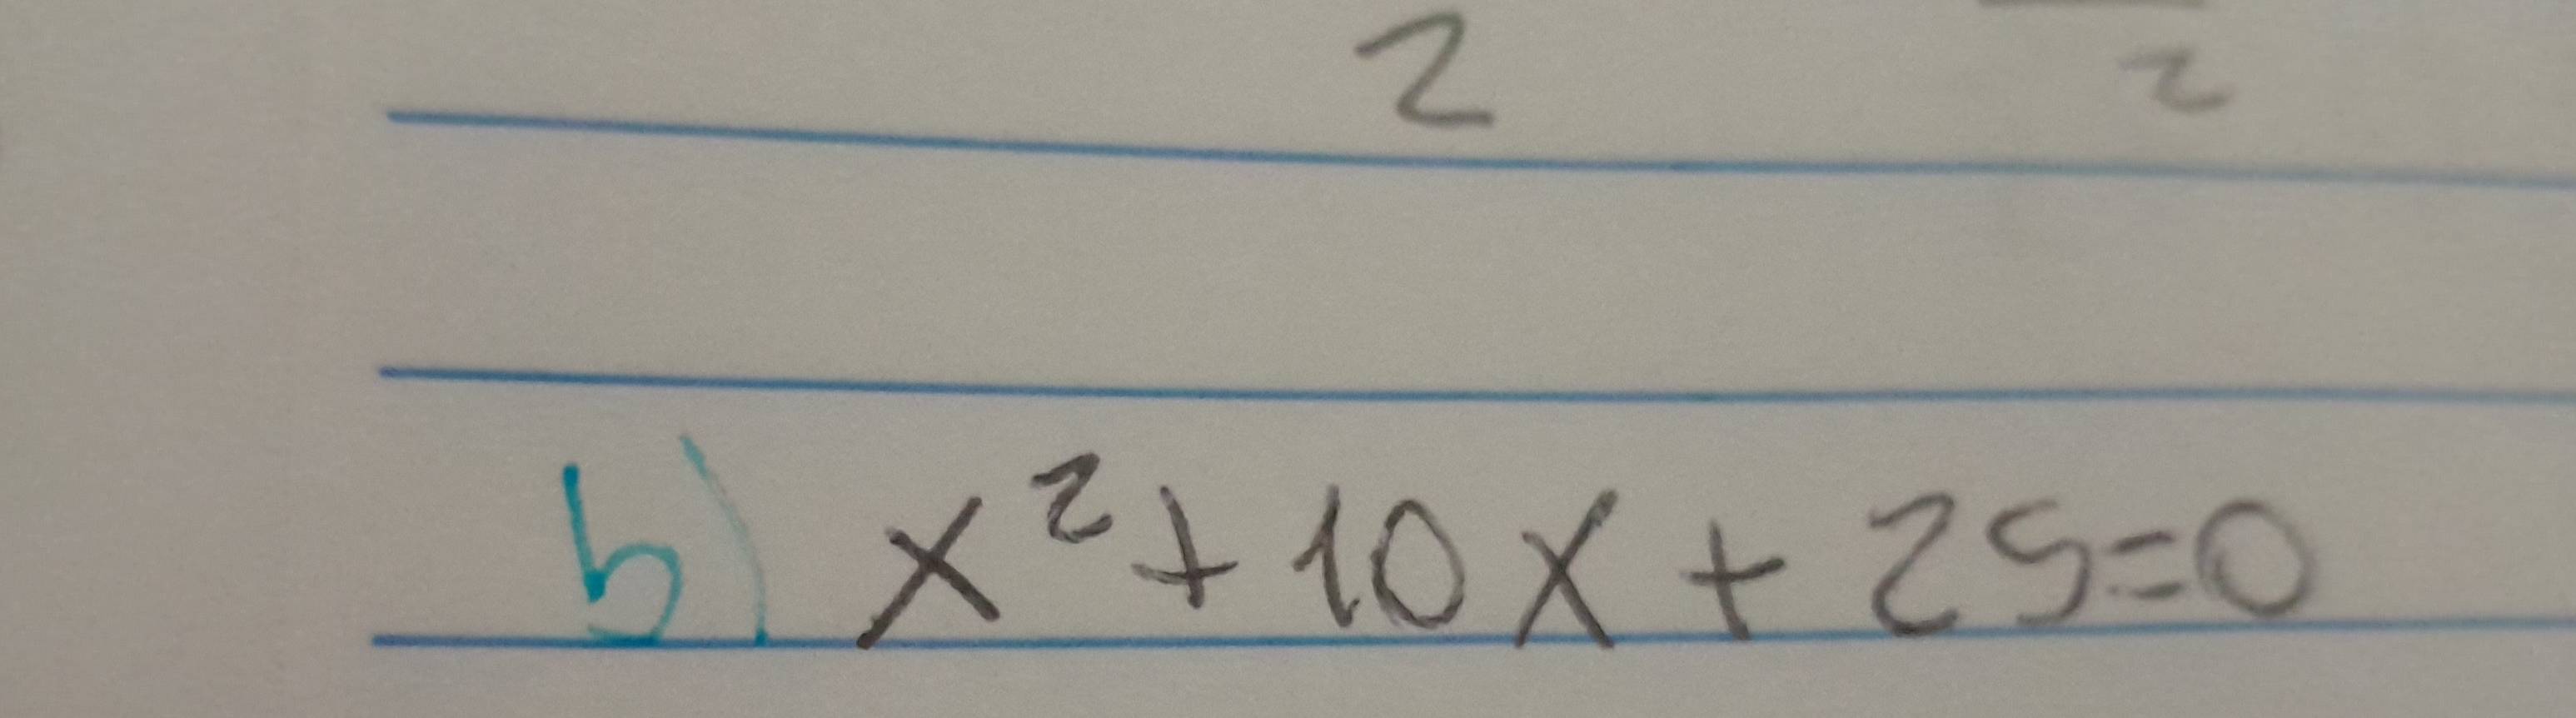 2 2
b) x² + 10x + 25=0